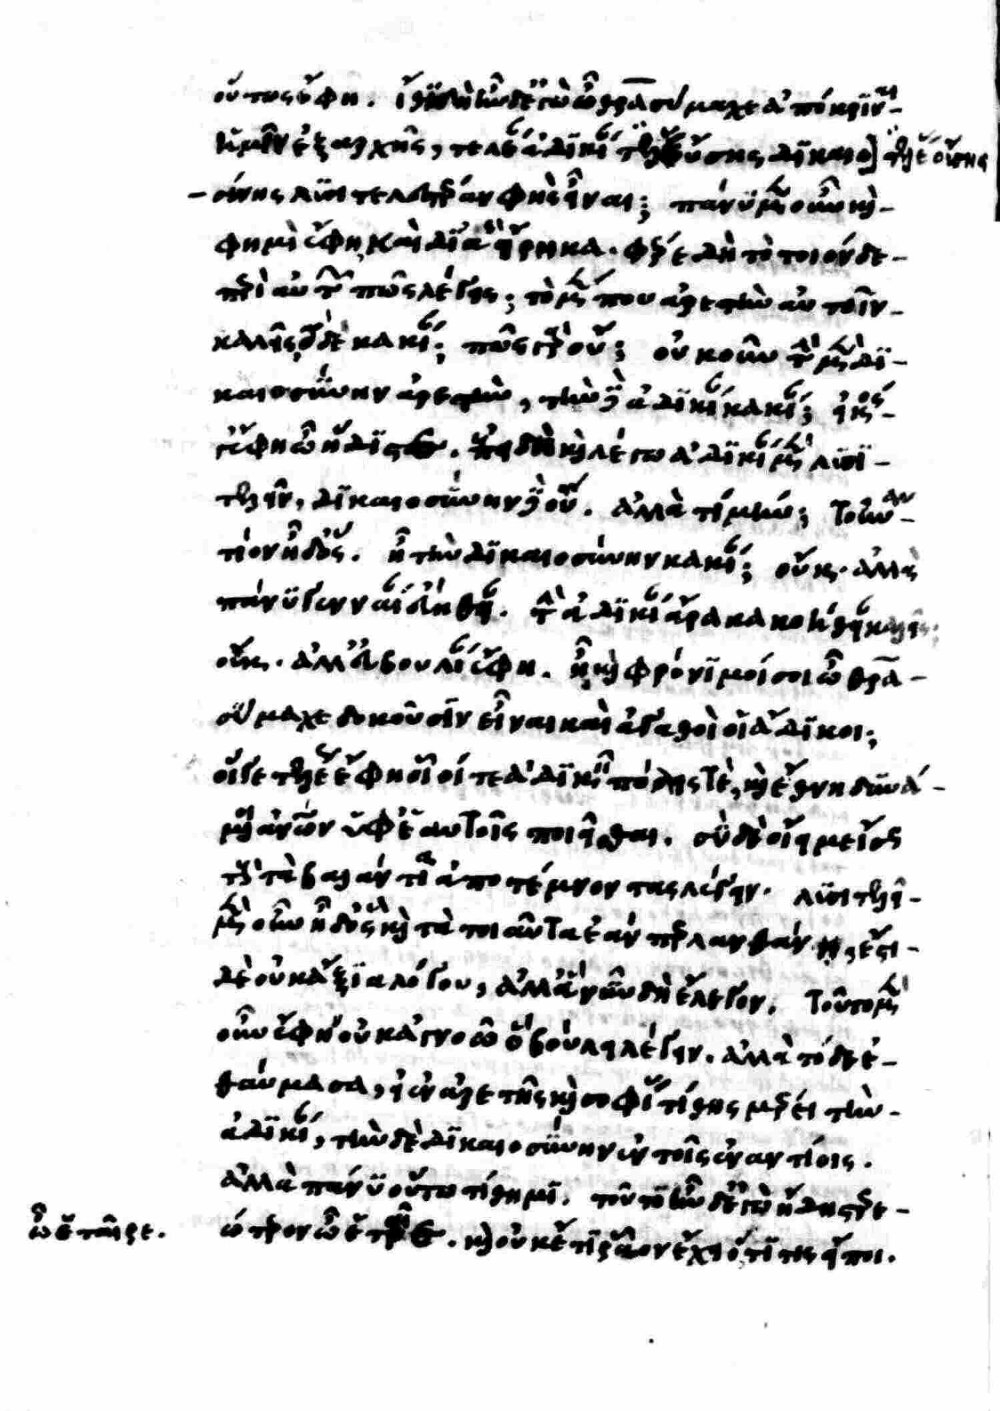 οὕτως ἔφη. ἴθι δὴ ἦν δ' ἐγὼ ὦ θρασύμαχε ἀπόκριναι
ἡμῖν ἐξ ἀρχῆς, τελέαν ἀδικίαν τελέας οὔσης δικαιο] τελέας οὔσης
σύνης λυσιτελεστέραν φῂς εἶναι; πάνυ μὲν οὖν καὶ
φημὶ ἔφη, καὶ δι' ἃ εἴρηκα. φέρε δὴ τὸ τοιόνδε
περὶ αὐτῶν πῶς λέγεις; τὸ μέν που ἀρετὴν αὐτοῖν
καλεῖς, τὸ δὲ κακίαν; πῶς γὰρ οὔ; οὐκοῦν τὴν μὲν δι
καιοσύνην ἀρετὴν, τὴν δὲ ἀδικίαν κακίαν; εἰκός γ'
ἔφη ὦ ἥδιστε. ἐπειδὴ καὶ λέγω ἀδικίαν μὲν λυσι
τελεῖν, δικαιοσύνην δ' οὔ. ἀλλὰ τί μήν; τοὐναν
τίον ἦ δ' ὅς. ἦ τὴν δικαιοσύνην κακίαν; οὔκ. ἀλλὰ
πάνυ γενναίαν εὐήθειαν. τὴν ἀδικίαν ἄρα κακοήθειαν καλεῖς;
οὔκ. ἀλλ' εὐβουλίαν ἔφη. ἦ καὶ φρόνιμοί σοι ὦ θρα
σύμαχε δοκοῦσιν εἶναι καὶ ἀγαθοὶ οἱ ἄδικοι;
οἵ γε τελέως ἔφη οἷοί τε ἀδικεῖν πόλεις τὲ, καὶ ἔθνη δυνά
μενοι ἀνθρώπων ὑφ' ἑαυτοῖς ποιεῖσθαι. σὺ δὲ οἴει με ἴσως
τοὺς τὰ βαλάντια ἀποτέμνοντας λέγειν. λυσιτελεῖ
μὲν οὖν ἦ δ' ὃς καὶ τὰ τοιαῦτα ἐάν περ λανθάνῃ, ἔστι
δὲ οὐκ ἄξια λόγου, ἀλλ' ἃ νῦν δὴ ἔλεγον. τοῦτο μὲν
οὖν ἔφην οὐκ ἀγνοῶ ὃ βούλει λέγειν. ἀλλὰ τόδε ἐ
θαύμασα, εἰ ἐν ἀρετῆς καὶ σοφίας τίθης μέρει τὴν
ἀδικίαν, τὴν δὲ δικαιοσύνην ἐν τοῖς ἐναντίοις.
ἀλλὰ πάνυ οὕτω τίθημι. τοῦτο ἦν δ' ἐγὼ ἤδη στερε
ώτερον ὦ ἑταῖρε. καὶ οὐκέτι ῥᾷον ἔχειν ὅ τί τις εἴποι.
ὦ ἑταῖρε.